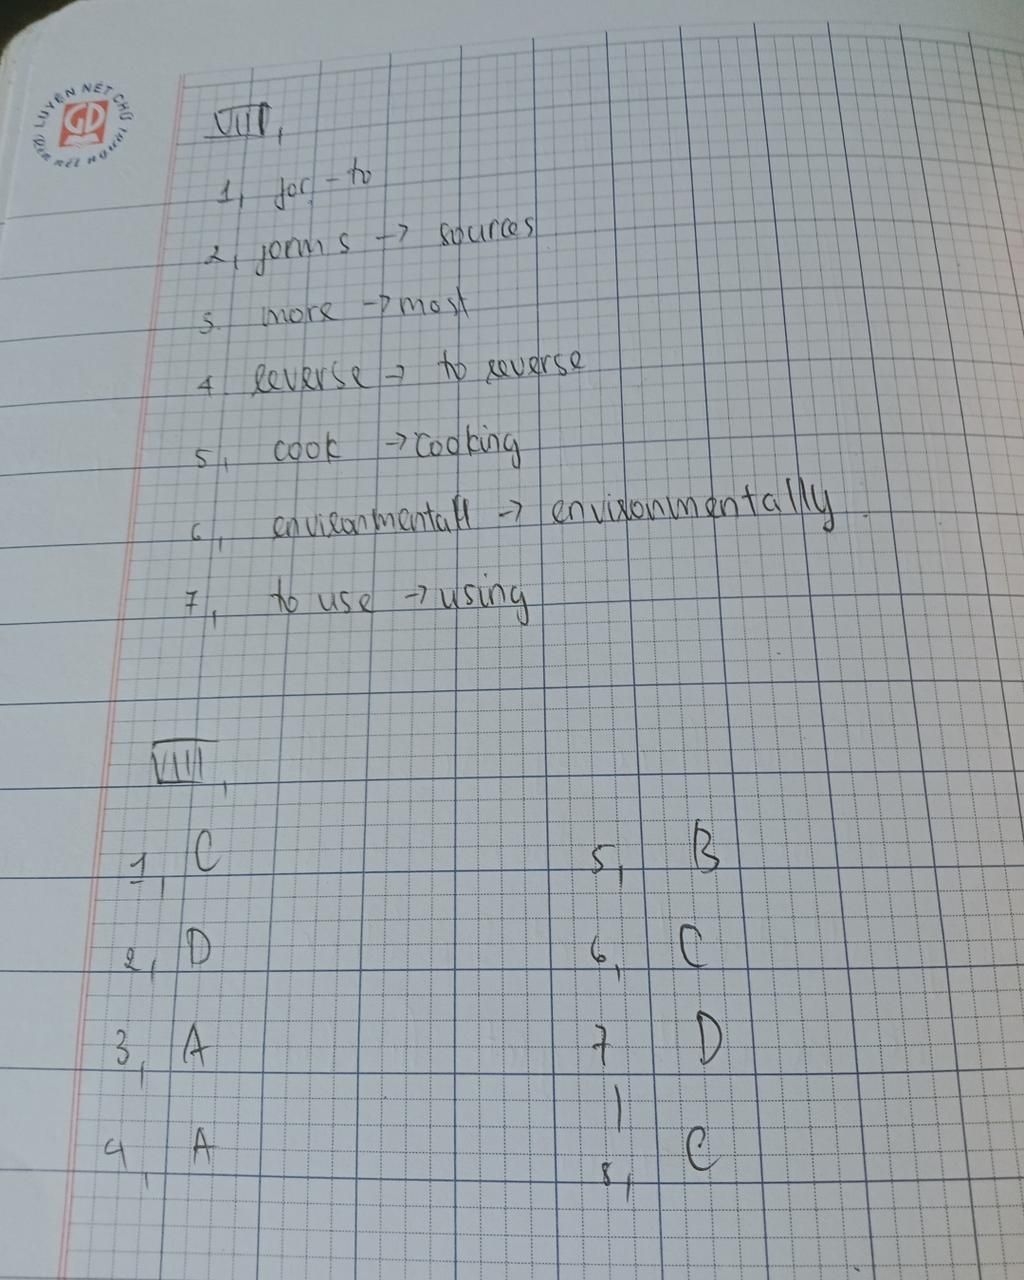 LUYỆN NÉT CHỮ
GD
RÈN NẾT NGƯỜI
VIII,
1, for - to
2, forms → sources
3. more → most
4 reverse → to reverse
5, cook → cooking
6, environmentall → environmentally
7, to use → using
VIII,
1, C 5, B
2, D 6, C
3, A 7 D
4, A 8, C